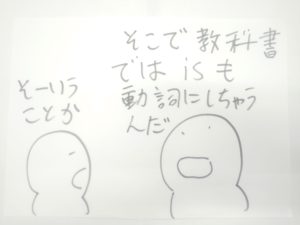 そこで教科書
では is も
動詞にしちゃう
んだ
そーいう
ことか